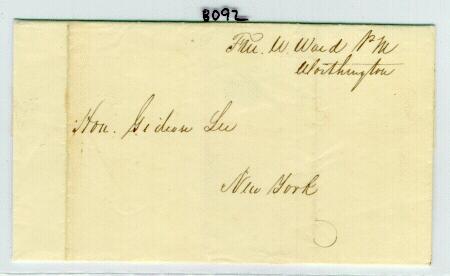 B092
Free. W. Ward P.M
Worthington
Hon. Gideon Lee
New York